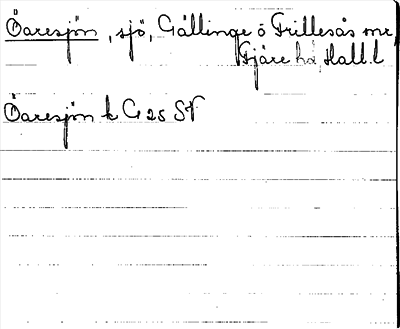 Öaresjön, sjö, Gällinge o Frillesås snr,
Fjäre hd, Hall. l
Öaresjön k G 25 SV